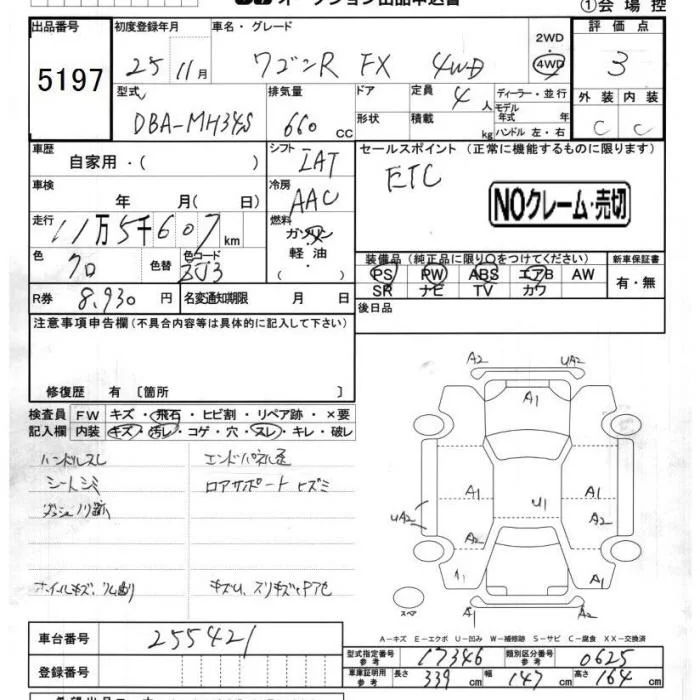 オークション出品申込書
①会場控
出品番号 初度登録年月 車名・グレード 2WD 評価点
5197 25 11月 ワゴンR FX 4WD 4WD 3
型式 排気量 ドア 定員 4人 ディーラー・並行 外装 内装
DBA-MH34S 660 CC 形状 積載 kg モデル年式 年 C C
ハンドル 左・右
車歴 自家用・( ) シフト IAT セールスポイント (正常に機能するものに限ります)
車検 年 月( 日) 冷房 AAC ETC
NOクレーム・売切
走行 11万5千607km 燃料 ガソリン
軽油
色 クロ 色替 色コード ZJ3 装備品 (純正品に限り○をつけてください) 新車保証書
PS PW ABS エアB AW 有・無
SR ナビ TV カワ
R券 8,930円 名変通知期限 月 日 後日品
注意事項申告欄(不具合内容等は具体的に記入して下さい)
修復歴 有 〔箇所 〕
検査員 FW キズ・飛石・ヒビ割・リペア跡・×要
記入欄 内装 キズ・汚レ・コゲ・穴・スレ・キレ・破レ
ハンドルスレ エンドパネル歪
シートシミ ロアサポートヒズミ
ダッシュノリ跡
ホイールキズ、
A2 UA2
A1
A1 U1 A1
UA2 A2 A2
A1 A1
スペア A1 A2
A−キズ E−エクボ U−凹み W−補修跡 S−サビ C−腐食 XX−交換済
車台番号 255421
型式指定番号 参考 17346 類別区分番号 参考 0625
登録番号 車庫証明用 参考 長さ 339cm 幅 147cm 高さ 164cm